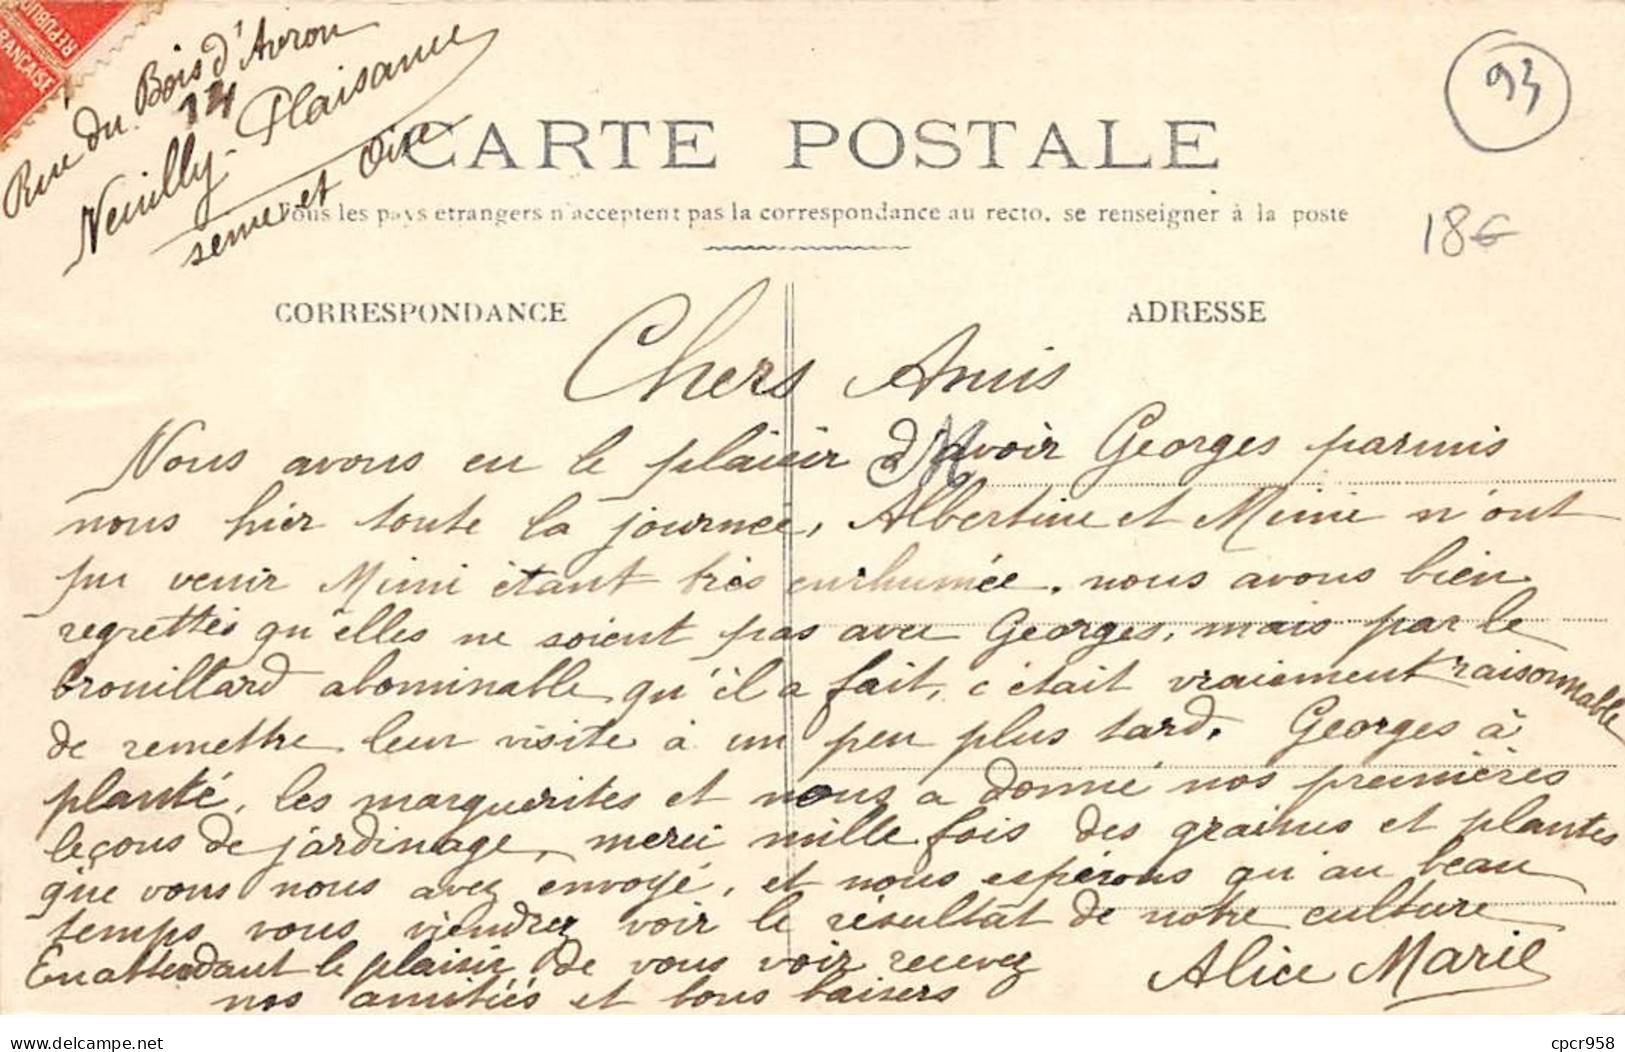 REPUBLIQUE
FRANÇAISE
Rue du Bois d'Avron
14
Neuilly-Plaisance
seine et Oise
93
CARTE POSTALE
Tous les pays etrangers n'acceptent pas la correspondance au recto, se renseigner à la poste
18€
CORRESPONDANCE
ADRESSE
Chers Amis
Nous avons eu le plaisir d'avoir Georges parmis
nous hier toute la journeé, Albertine et Mimie n'ont
pu venir Mimi étant très enrhumée. nous avons bien
regrettés qu'elles ne soient pas avec Georges, mais par le
brouillard abominable qu'il a fait, c'était vraiement raisonnable
de remettre leur visite à un peu plus tard. Georges à
planté, les marguerites et nous a donné nos premières
leçons de jardinage, merci mille fois des graines et plantes
que vous nous avez envoyé, et nous espérons qu'au beau
temps vous viendrez voir le résultat de notre culture
En attendant le plaisir de vous voir recevez
nos amitiés et bons baisers
Alice Marie
cpcr958